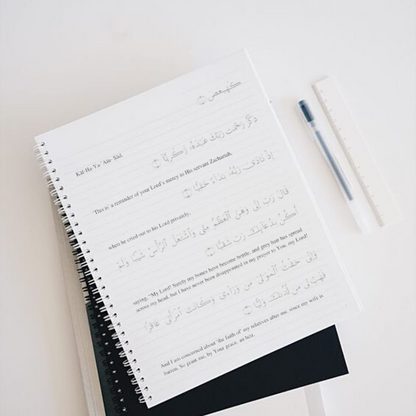 كهيعص ۝
Kãf-Ha-Ya-'Aĩn- Ṣãd.
ذِكْرُ رَحْمَتِ رَبِّكَ عَبْدَهُۥ زَكَرِيَّآ ۝
'This is' a reminder of your Lord's mercy to His servant Zachariah,
إِذْ نَادَىٰ رَبَّهُۥ نِدَآءً خَفِيًّا ۝
when he cried out to his Lord privately,
قَالَ رَبِّ إِنِّى وَهَنَ ٱلْعَظْمُ مِنِّى وَٱشْتَعَلَ ٱلرَّأْسُ شَيْبًا وَلَمْ
أَكُنۢ بِدُعَآئِكَ رَبِّ شَقِيًّا ۝
saying, "My Lord! Surely my bones have become brittle, and grey hair has spread
across my head, but I have never been disappointed in my prayer to You, my Lord!
وَإِنِّى خِفْتُ ٱلْمَوَٰلِىَ مِن وَرَآءِى وَكَانَتِ ٱمْرَأَتِى عَاقِرًا
فَهَبْ لِى مِن لَّدُنكَ وَلِيًّا ۝
And I am concerned about 'the faith of' my relatives after me, since my wife is
barren. So grant me, by Your grace, an heir,